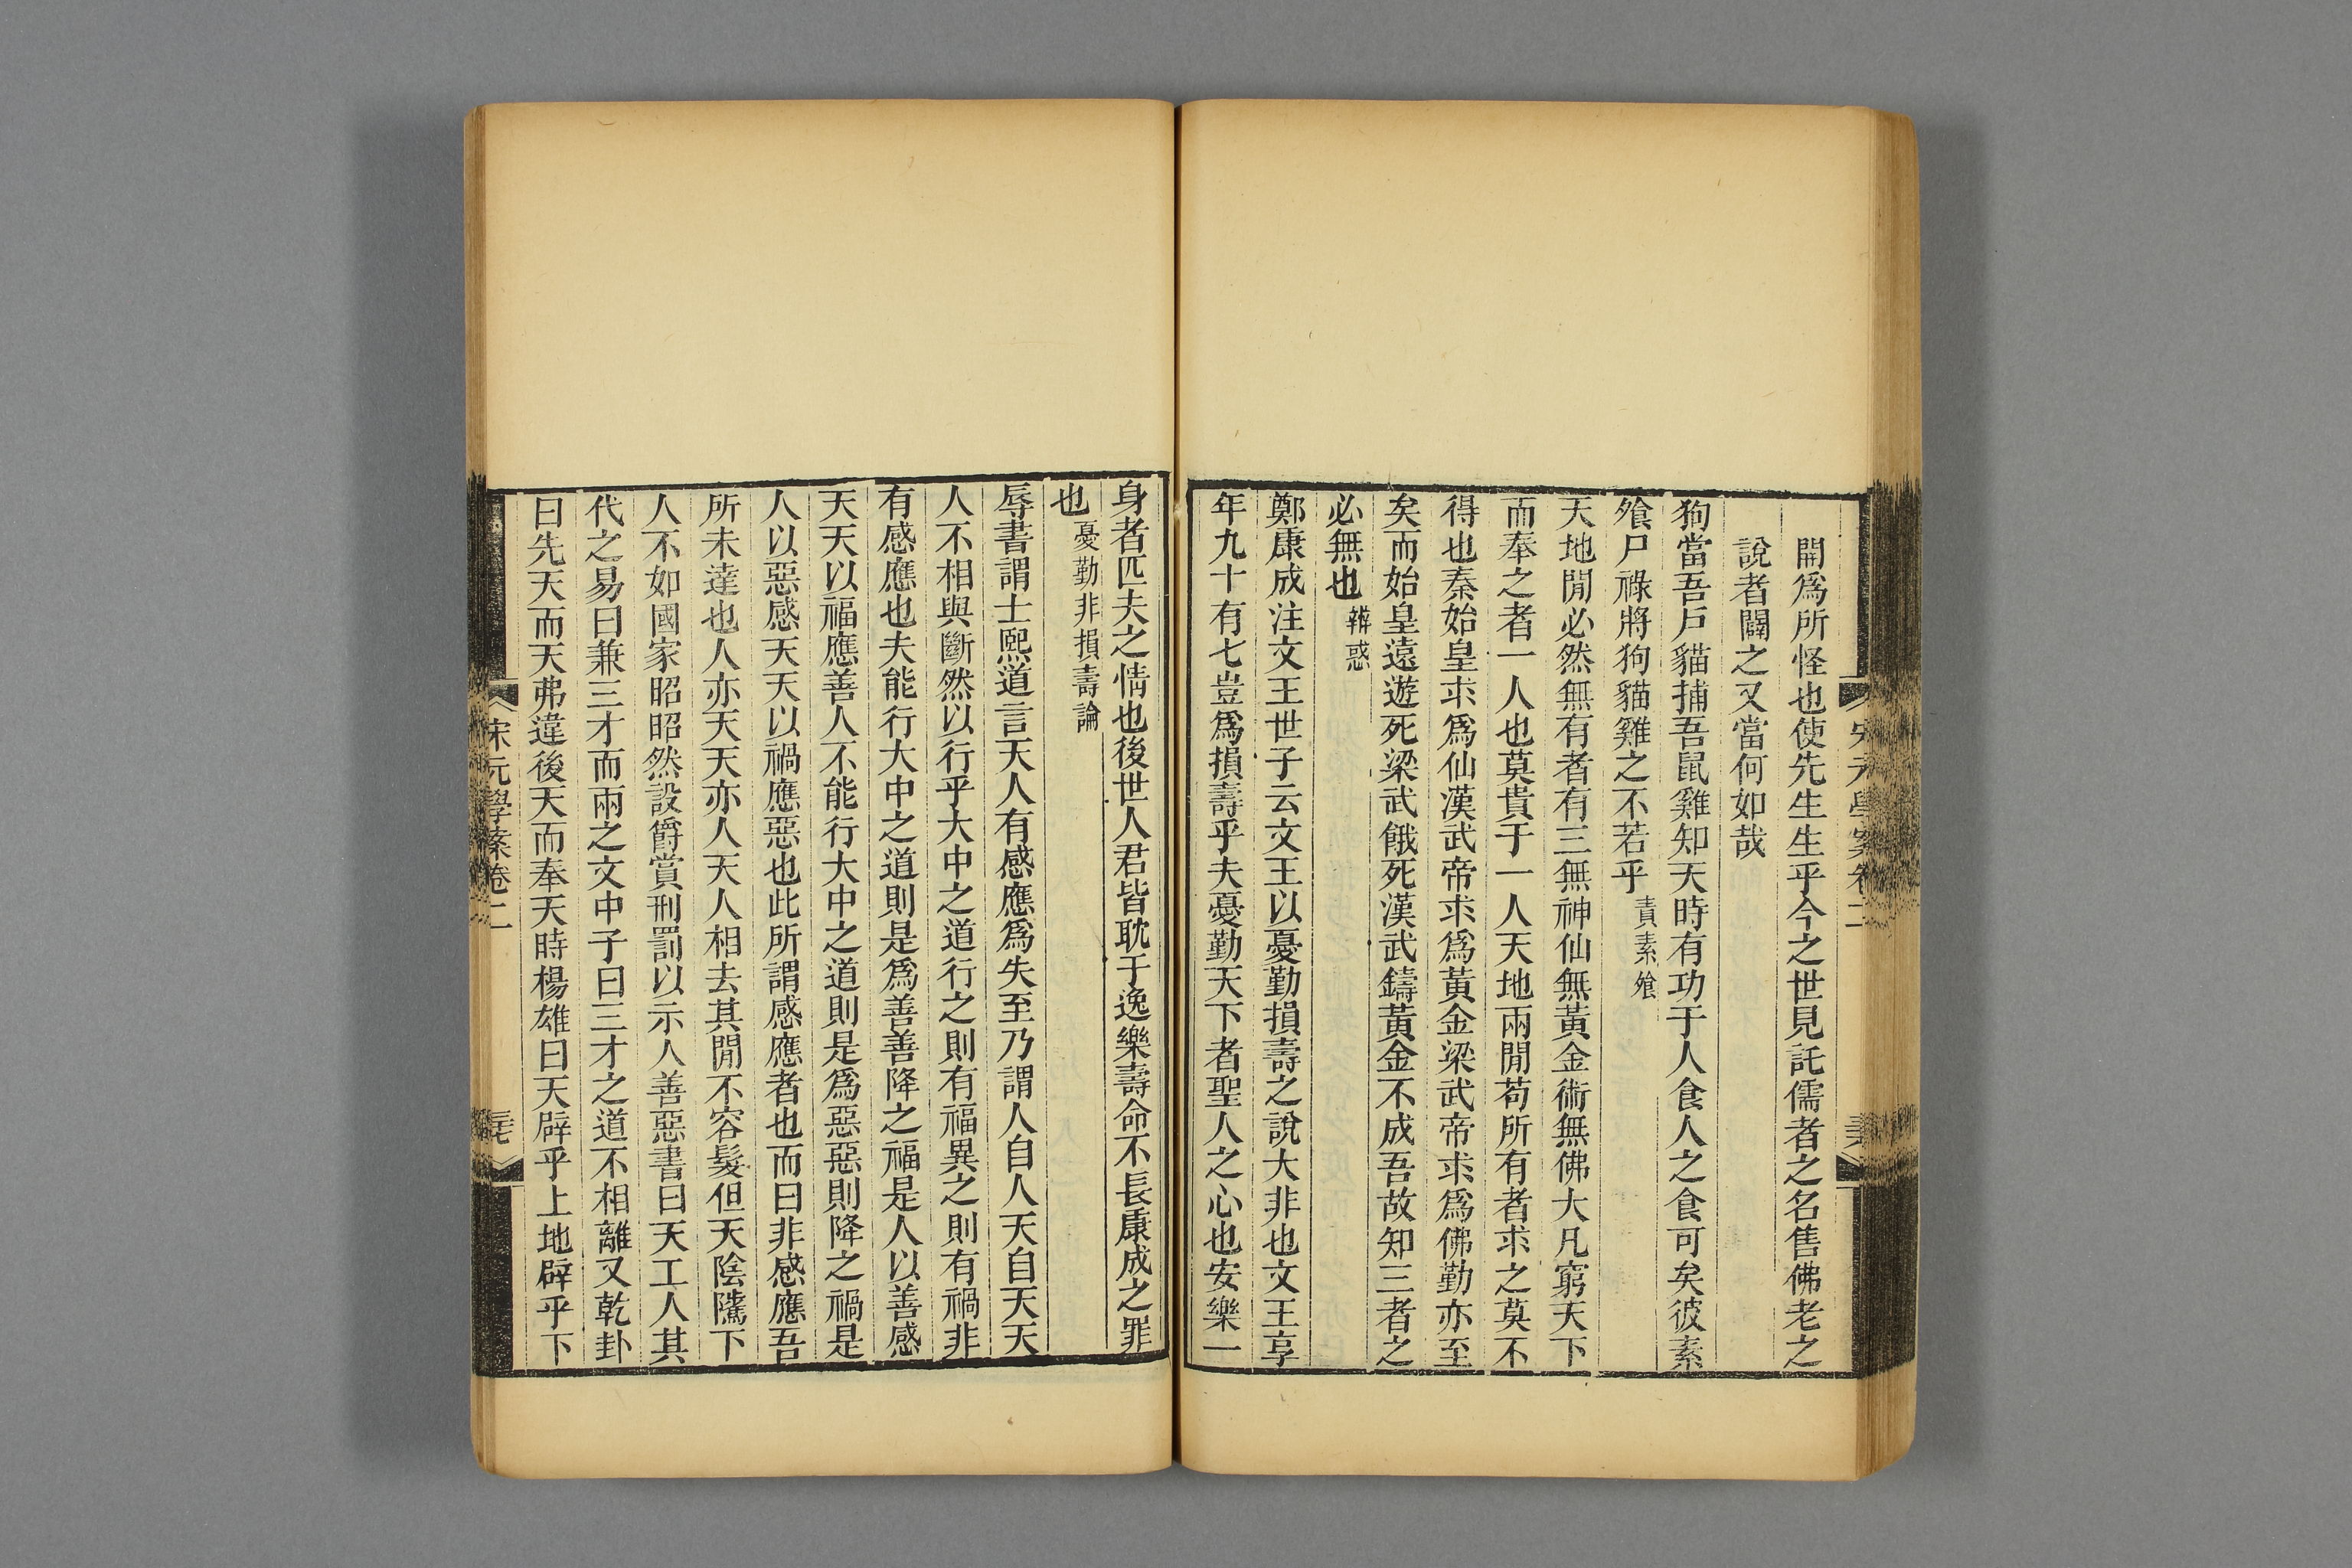 開爲所怪也使先生生乎今之世見託儒者之名售佛老之
說者闢之又當何如哉
狗當吾戶貓捕吾鼠雞知天時有功于人食人之食可矣彼素
飱尸祿將狗貓雞之不若乎責素飱
天地閒必然無有者有三無神仙無黃金術無佛大凡窮天下
而奉之者一人也莫貴于一人天地兩閒苟所有者求之莫不
得也秦始皇求爲仙漢武帝求爲黃金梁武帝求爲佛勤亦至
矣而始皇遠遊死梁武餓死漢武鑄黃金不成吾故知三者之
必無也辨惑
鄭康成注文王世子云文王以憂勤損壽之說大非也文王享
年九十有七豈爲損壽乎夫憂勤天下者聖人之心也安樂一
身者匹夫之情也後世人君皆耽于逸樂壽命不長康成之罪
也憂勤非損壽論
辱書謂士熙道言天人有感應爲失至乃謂人自人天自天天
人不相與斷然以行乎大中之道行之則有福異之則有禍非
有感應也夫能行大中之道則是爲善善降之福是人以善感
天天以福應善人不能行大中之道則是爲惡惡則降之禍是
人以惡感天天以禍應惡也此所謂感應者也而曰非感應吾
所未達也人亦天天亦人天人相去其閒不容髮但天陰隲下
人不如國家昭昭然設爵賞刑罰以示人善惡書曰天工人其
代之易曰兼三才而兩之文中子曰三才之道不相離又乾卦
曰先天而天弗違後天而奉天時楊雄曰天辟乎上地辟乎下
宋元學案卷二